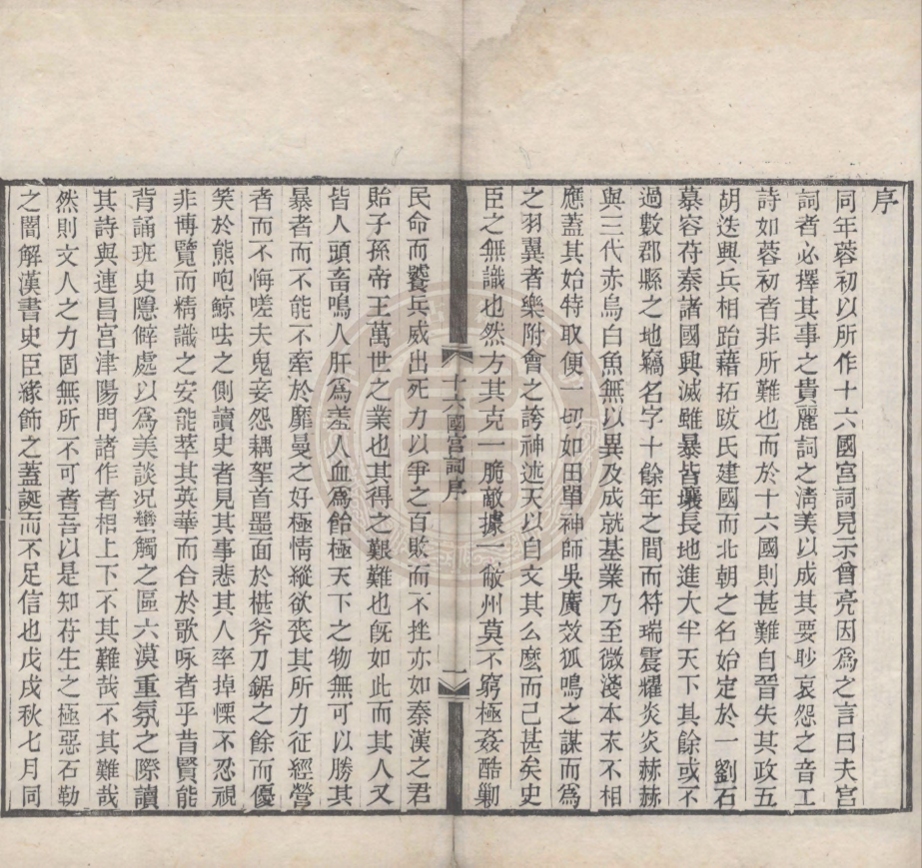 序
同年蓉初以所作十六國宮詞見示曾亮因爲之言曰夫宮
詞者必擇其事之貴麗詞之淸美以成其要眇哀怨之音工
詩如蓉初者非所難也而於十六國則甚難自晉失其政五
胡迭興兵相跆藉拓跋氏建國而北朝之名始定於一劉石
慕容苻秦諸國興滅雖暴皆壤長地進大半天下其餘或不
過數郡縣之地竊名字十餘年之間而符瑞震耀炎炎赫赫
與三代赤烏白魚無以異及成就基業乃至微淺本末不相
應蓋其始特取便一切如田單神師吳廣效狐鳴之謀而爲
之羽翼者樂附會之誇神述天以自文其么麽而己甚矣史
臣之無識也然方其克一脆敵據一敝州莫不窮極姦酷剿
十六國宮詞序
一
民命而饕兵威出死力以爭之百敗而不挫亦如秦漢之君
貽子孫帝王萬世之業也其得之艱難也旣如此而其人又
皆人頭畜鳴人肝爲羞人血爲飴極天下之物無可以勝其
暴者而不能不牽於靡曼之好極情縱欲喪其所力征經營
者而不悔嗟夫鬼妾怨耦挐首墨面於椹斧刀鋸之餘而優
笑於熊咆鯨呿之側讀史者見其事悲其人率掉慄不忍視
非博覽而精識之安能萃其英華而合於歌咏者乎昔賢能
背誦班史隱僻處以爲美談况蠻觸之區六漠重氛之際讀
其詩與連昌宮津陽門諸作者相上下不其難哉不其難哉
然則文人之力固無所不可者吾以是知苻生之極惡石勒
之闇解漢書史臣緣飾之蓋誕而不足信也戊戌秋七月同